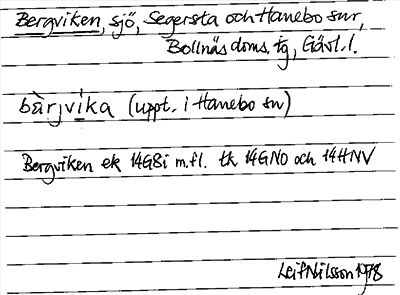 Bergviken, sjö, Segersta och Hanebo snr,
Bollnäs doms. tg, Gävl. l.
bàrjvika (uppt. i Hanebo sn)
Bergviken ek 14G8i m.fl. tk 14GNO och 14HNV
Leif Nilsson 1978